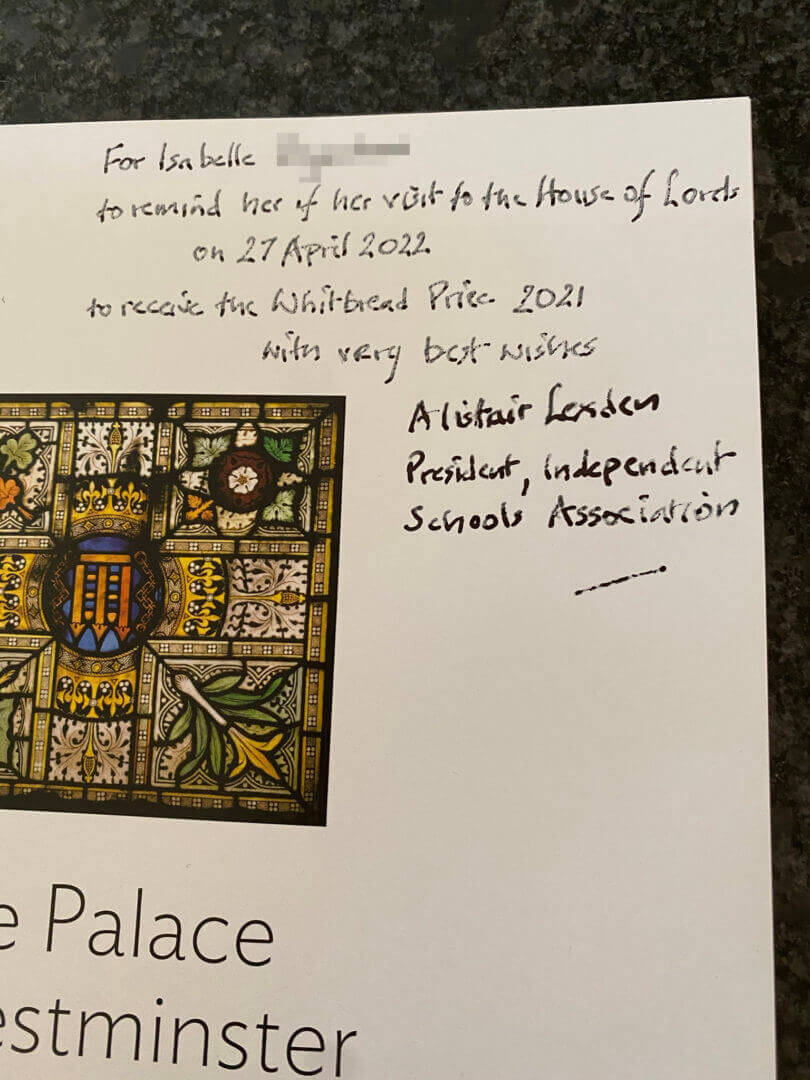 For Isabelle
to remind her of her visit to the House of Lords
on 27 April 2022
to receive the Whitbread Prize 2021
with very best wishes
Alistair Lexden
President, Independent
Schools Association
e Palace
estminster